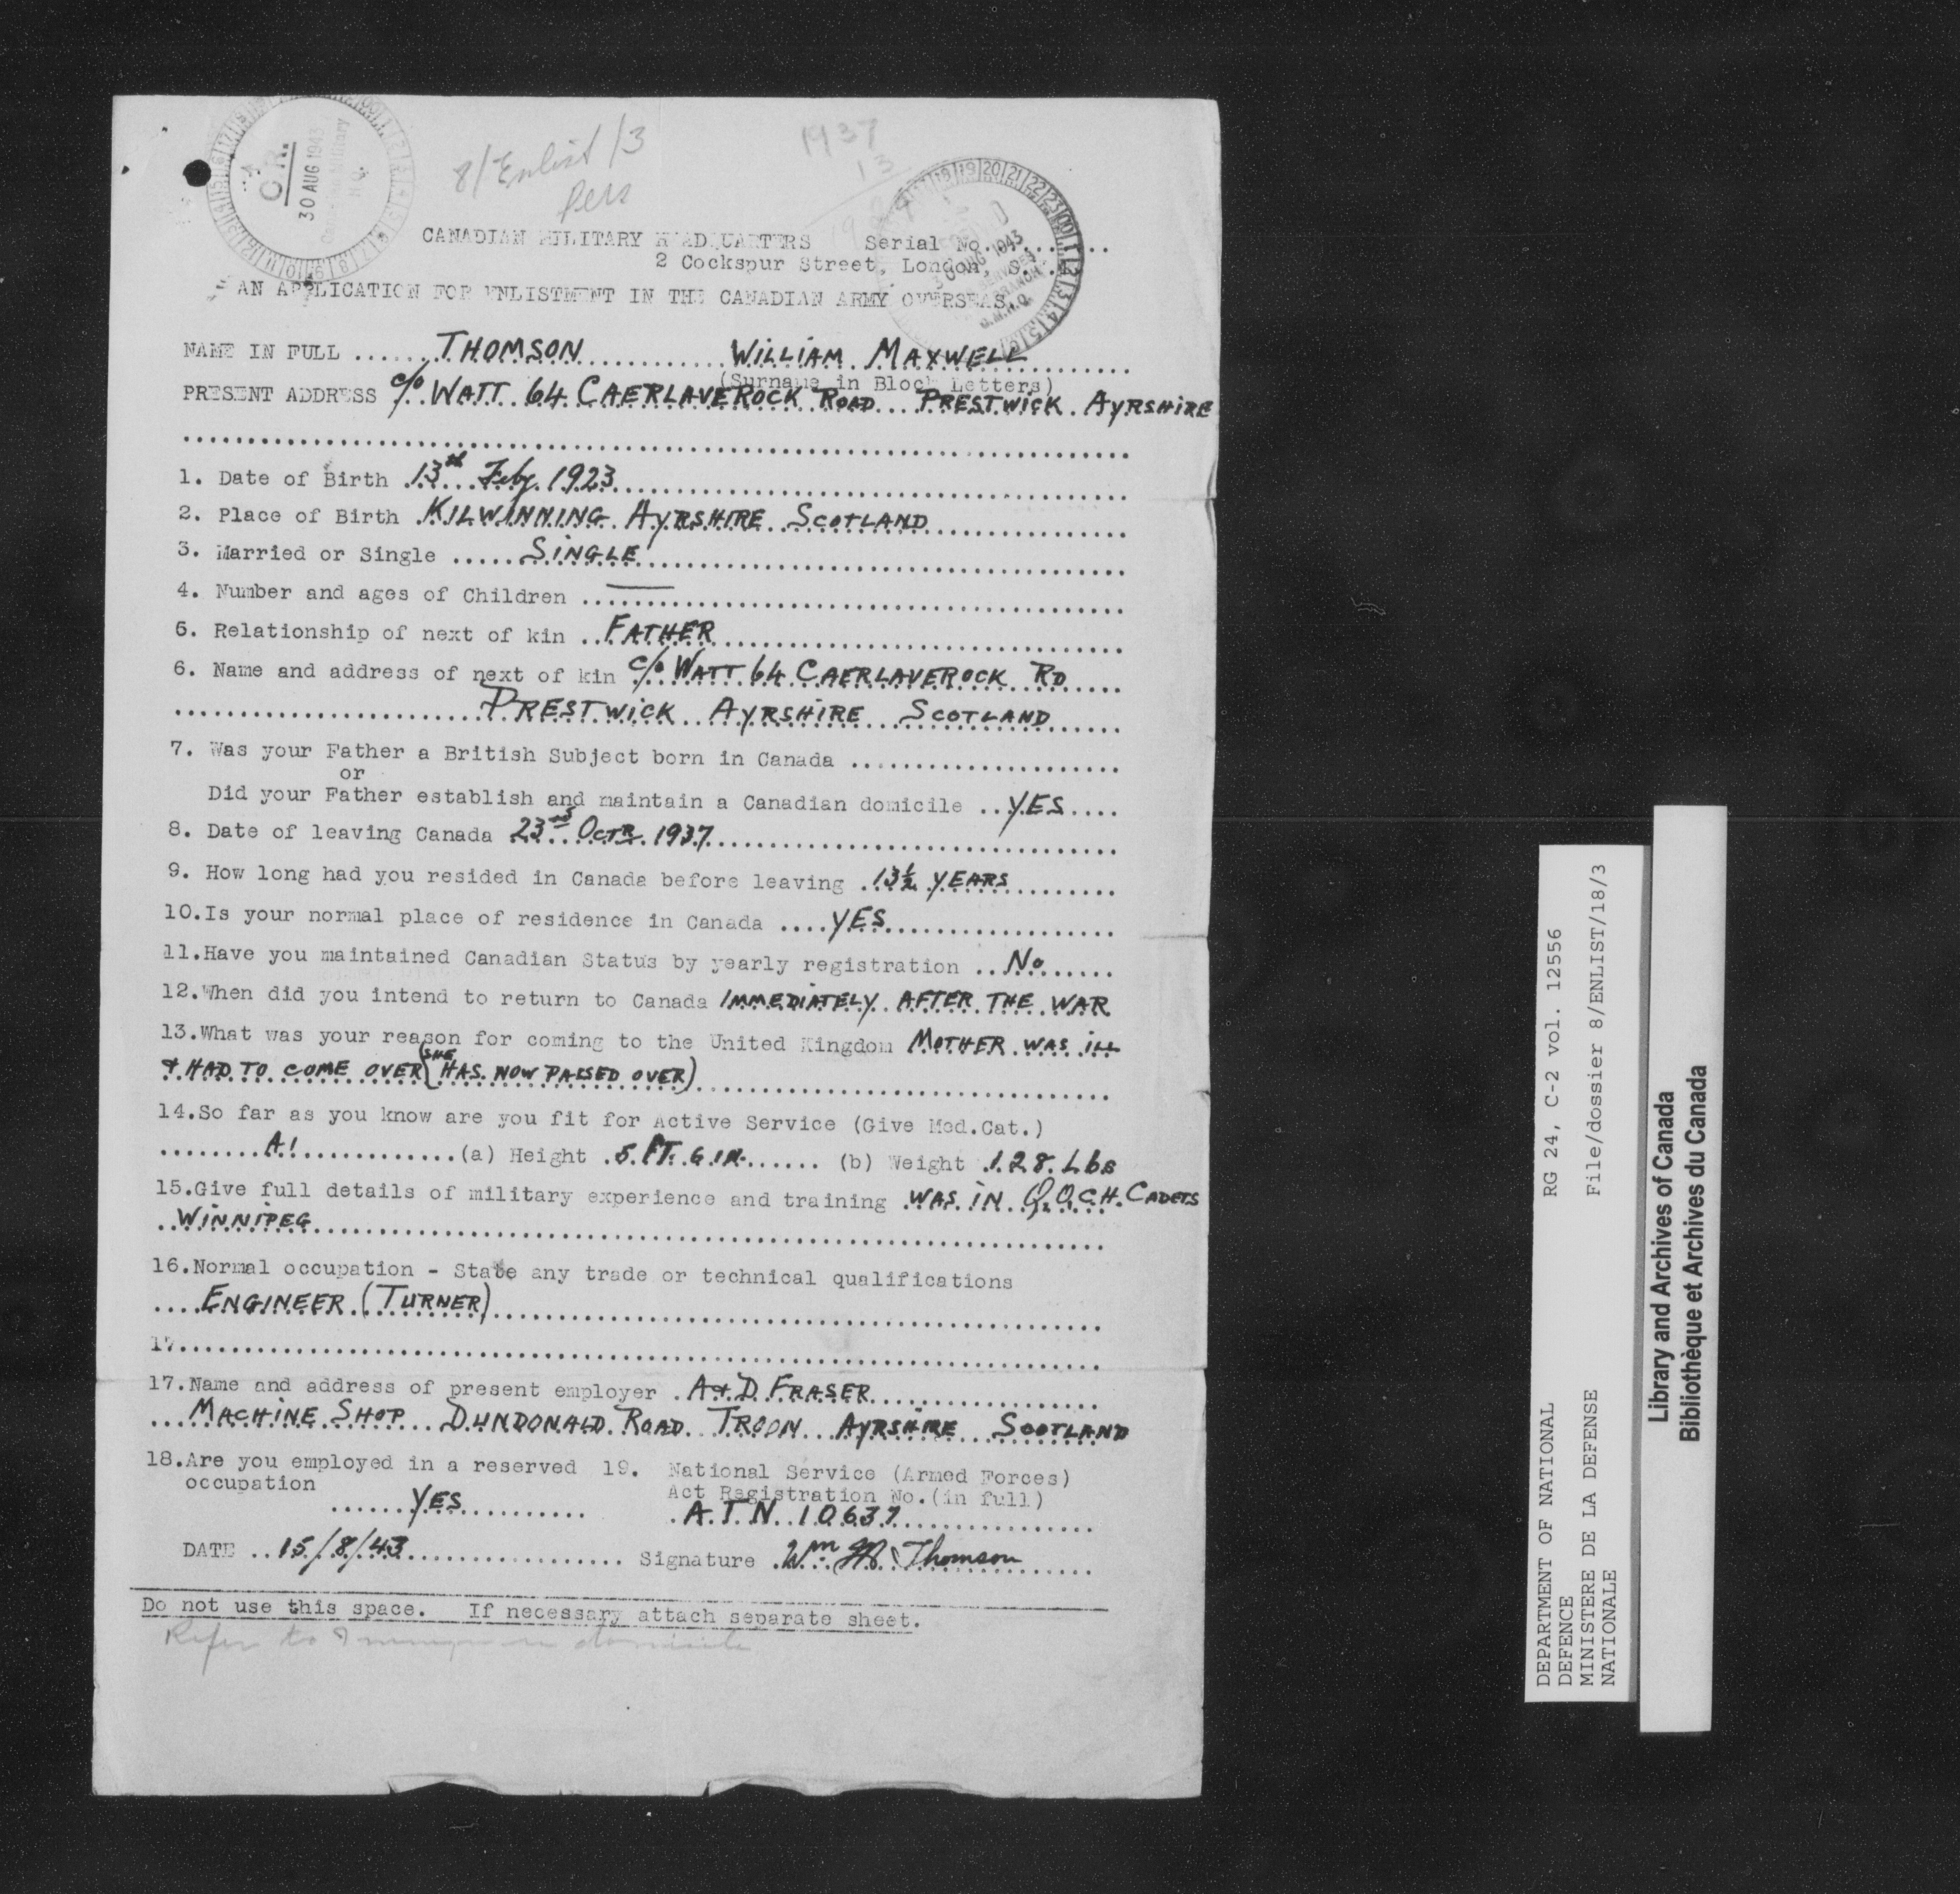 C.R.
30 AUG 1943
8/Enlist/3
Pers
1937
13
CANADIAN MILITARY HEADQUARTERS Serial No..........
2 Cockspur Street, London, S.W.1.
AN APPLICATION FOR ENLISTMENT IN THE CANADIAN ARMY OVERSEAS.
30 AUG 1943
SERVICES
BRANCH
C.M.H.Q.
NAME IN FULL ...... THOMSON ........... WILLIAM MAXWELL
(Surname in Block Letters)
PRESENT ADDRESS c/o WATT 64 CAERLAVEROCK ROAD PRESTWICK AYRSHIRE
1. Date of Birth 13th Feby 1923
2. Place of Birth KILWINNING AYRSHIRE SCOTLAND
3. Married or Single ..... SINGLE
4. Number and ages of Children .. —
5. Relationship of next of kin .. FATHER
6. Name and address of next of kin c/o WATT 64 CAERLAVEROCK RD
PRESTWICK AYRSHIRE SCOTLAND
7. Was your Father a British Subject born in Canada .....................
or
Did your Father establish and maintain a Canadian domicile .. YES ....
8. Date of leaving Canada 23rd OCTR. 1937
9. How long had you resided in Canada before leaving . 13½ YEARS
10. Is your normal place of residence in Canada .... YES
11. Have you maintained Canadian Status by yearly registration .. No
12. When did you intend to return to Canada IMMEDIATELY AFTER THE WAR
13. What was your reason for coming to the United Kingdom MOTHER WAS ILL
& HAD TO COME OVER (SHE HAS NOW PASSED OVER)
14. So far as you know are you fit for Active Service (Give Med.Cat.)
........ A1 ............. (a) Height . 5 FT. 6 IN. ...... (b) Weight 128 Lbs
15. Give full details of military experience and training . WAS IN Q.O.C.H. CADETS
WINNIPEG
16. Normal occupation - State any trade or technical qualifications
.... ENGINEER (TURNER)
17.
17. Name and address of present employer . A & D FRASER
MACHINE SHOP DUNDONALD ROAD TROON AYRSHIRE SCOTLAND
18. Are you employed in a reserved occupation
...... YES ..........
19. National Service (Armed Forces)
Act Registration No. (in full)
. A.T.N. 10637
DATE .. 15/8/43 ................ Signature . Wm M Thomson
Do not use this space. If necessary attach separate sheet.
Refer to domicile
RG 24, C-2 vol. 12556
File/dossier 8/ENLIST/18/3
DEPARTMENT OF NATIONAL
DEFENCE
MINISTERE DE LA DEFENSE
NATIONALE
Library and Archives of Canada
Bibliothèque et Archives du Canada